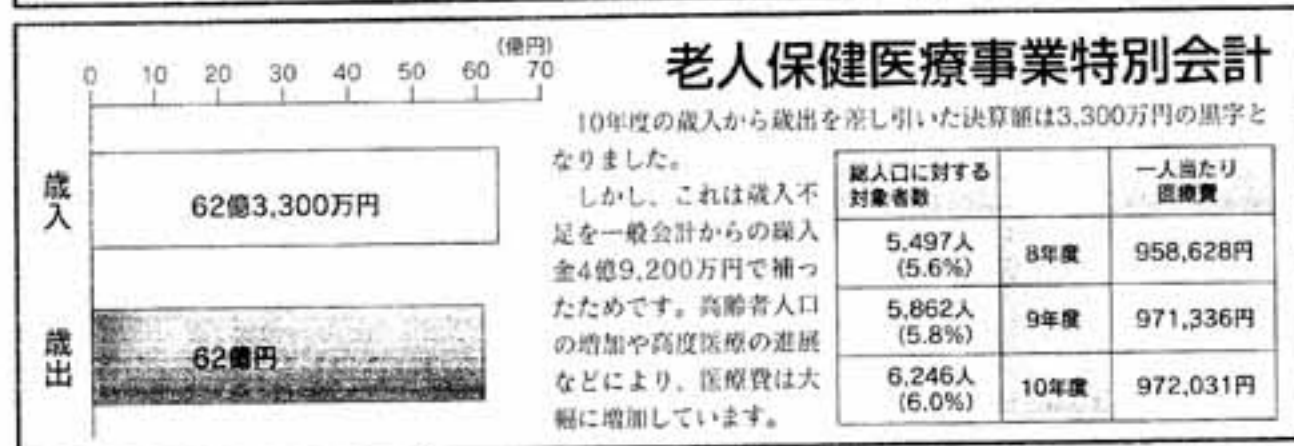 (億円)
0 10 20 30 40 50 60 70
歳入
62億3,300万円
歳出
62億円
老人保健医療事業特別会計
10年度の歳入から歳出を差し引いた決算額は3,300万円の黒字と
なりました。
しかし、これは歳入不
足を一般会計からの繰入
金4億9,200万円で補っ
たためです。高齢者人口
の増加や高度医療の進展
などにより、医療費は大
幅に増加しています。
総人口に対する
対象者数
一人当たり
医療費
5,497人
(5.6%)
8年度
958,628円
5,862人
(5.8%)
9年度
971,336円
6,246人
(6.0%)
10年度
972,031円